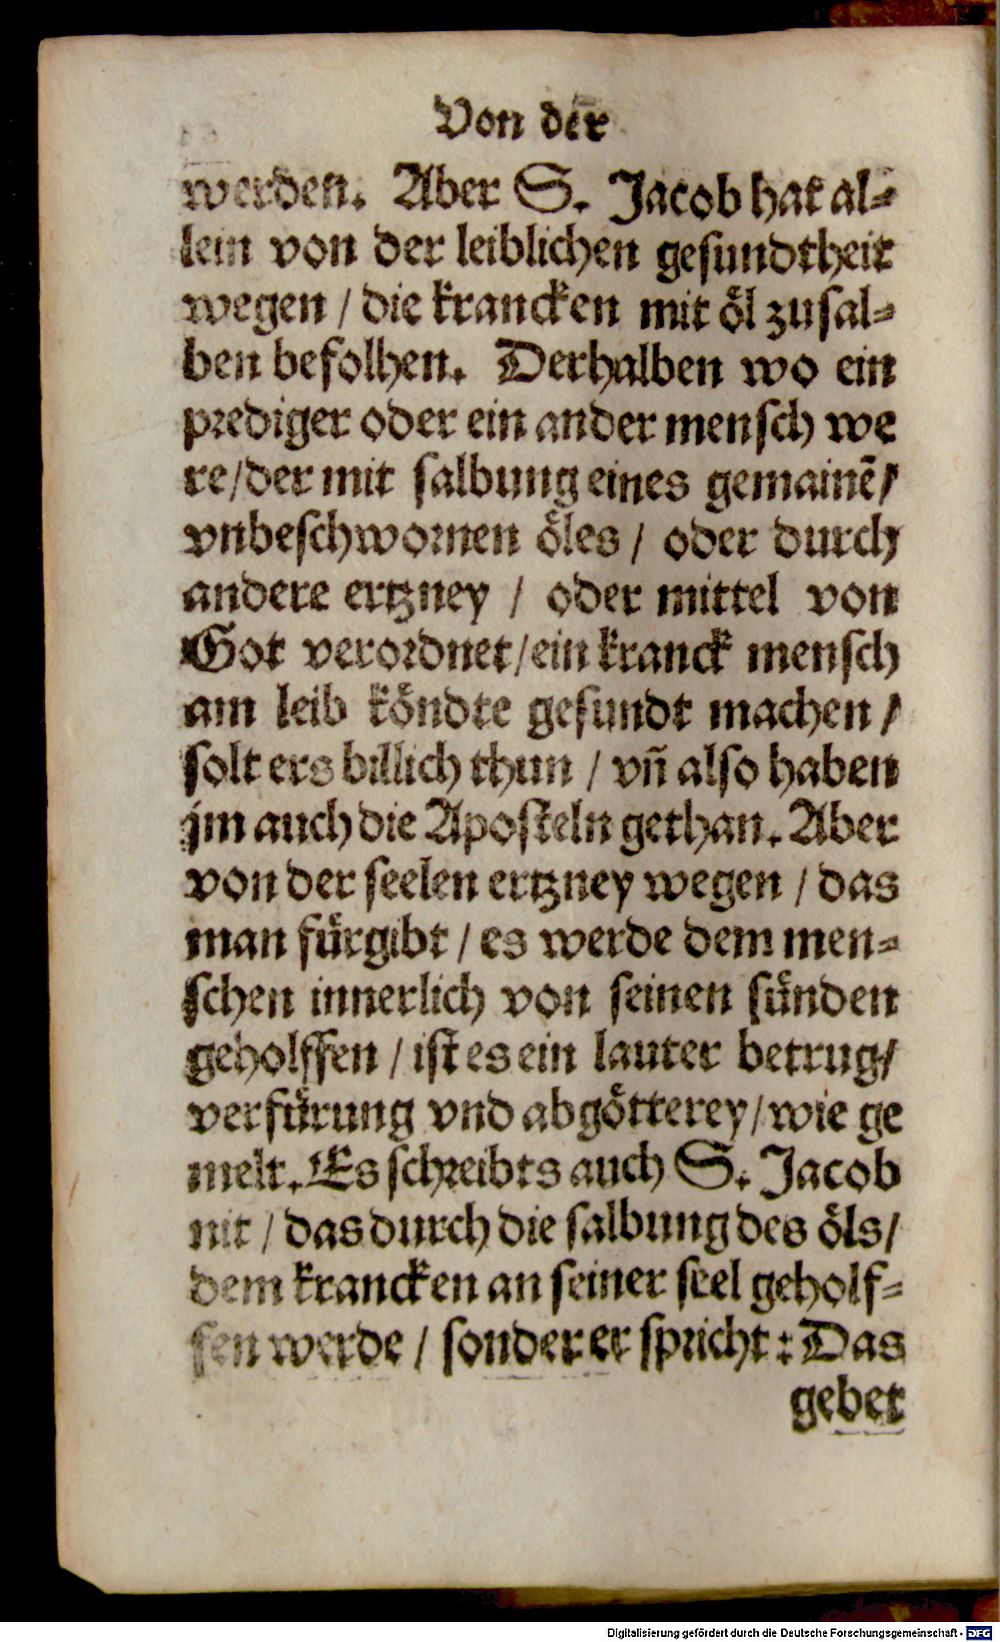 Von der
werden. Aber S. Jacob hat al⸗
lein von der leiblichen gesundtheit
wegen / die krancken mit öl zusal⸗
ben befolhen. Derhalben wo ein
prediger oder ein ander mensch we
re / der mit salbung eines gemainē /
vnbeschwornen öles / oder durch
andere ertzney / oder mittel von
Got verordnet / ein kranck mensch
am leib köndte gesundt machen /
solt ers billich thun / vñ also haben
jm auch die Aposteln gethan. Aber
von der seelen ertzney wegen / das
man fürgibt / es werde dem men⸗
schen innerlich von seinen sünden
geholffen / ist es ein lauter betrug /
verfürung vnd abgötterey / wie ge
melt. Es schreibts auch S. Jacob
nit / das durch die salbung des öls /
dem krancken an seiner seel geholf⸗
fen werde / sonder er spricht : Das
gebet
Digitalisierung gefördert durch die Deutsche Forschungsgemeinschaft - DFG